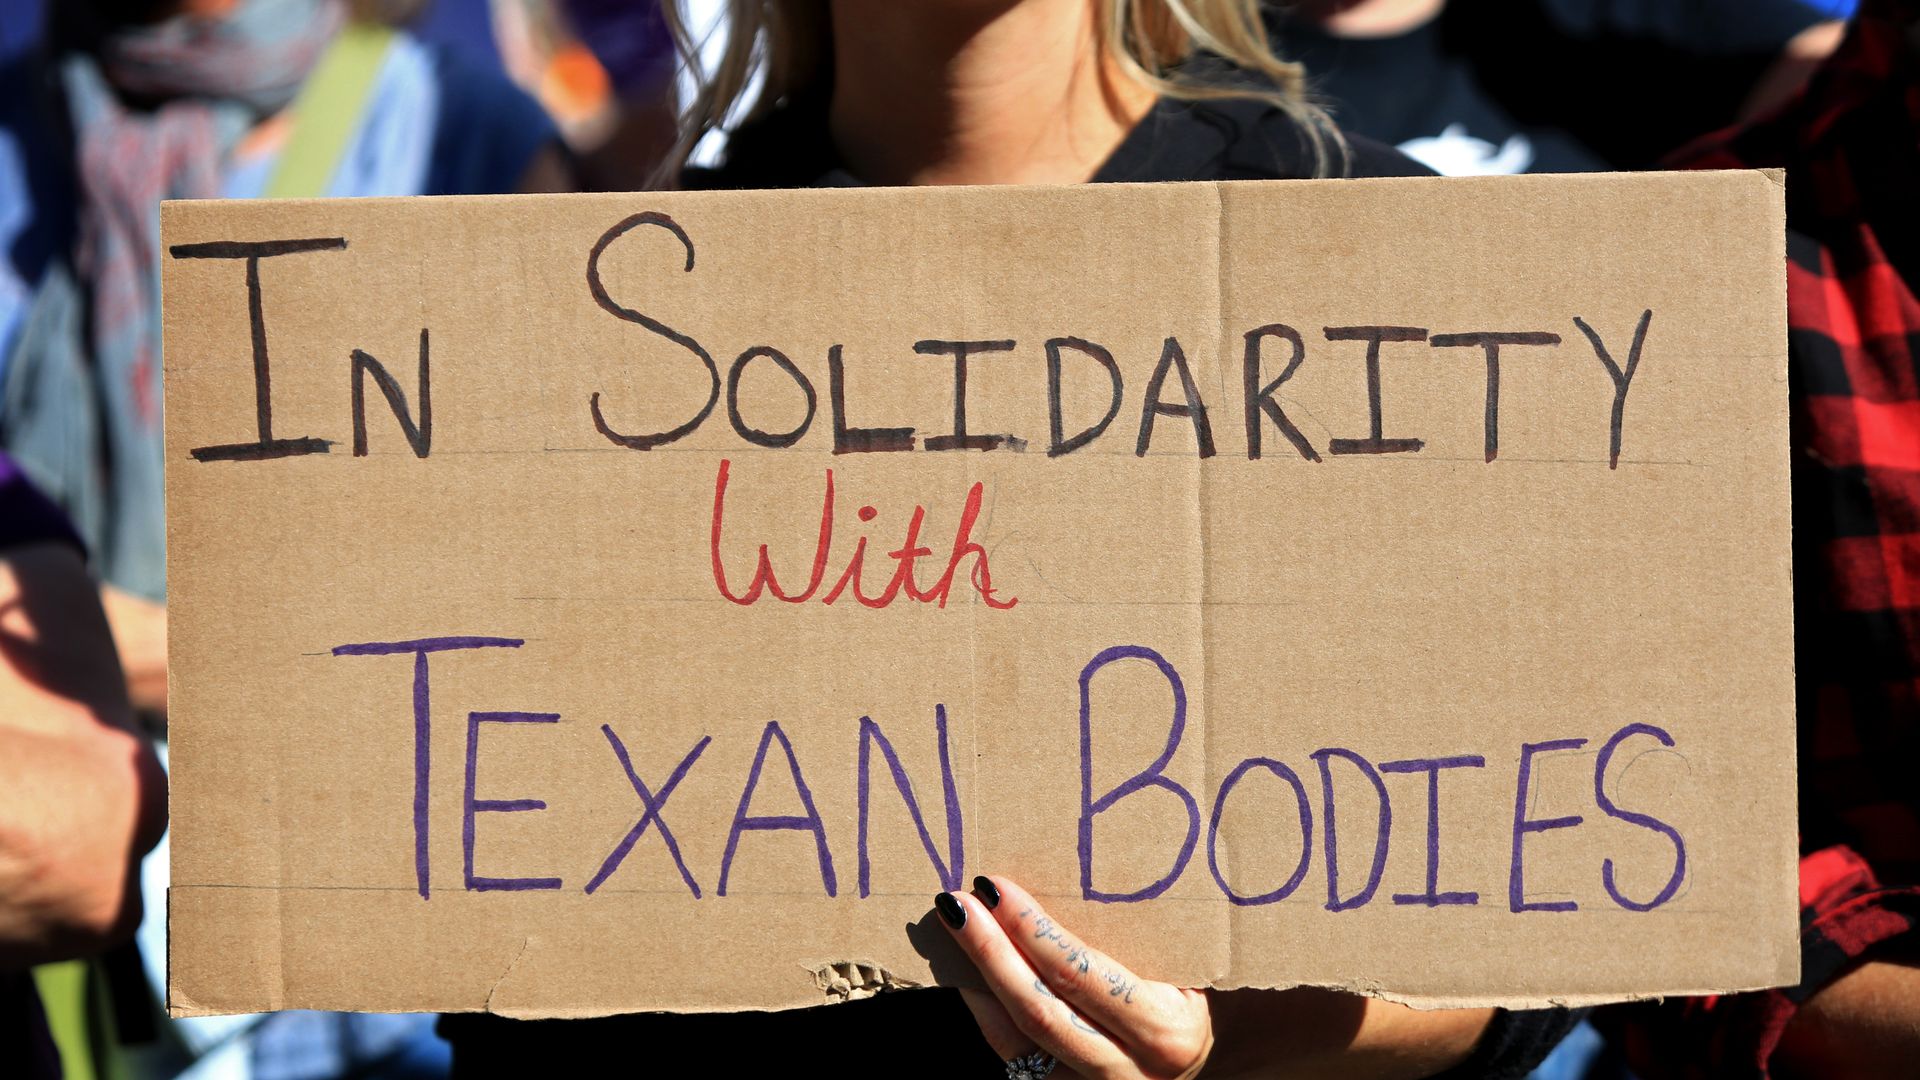 In Solidarity
With
Texan Bodies